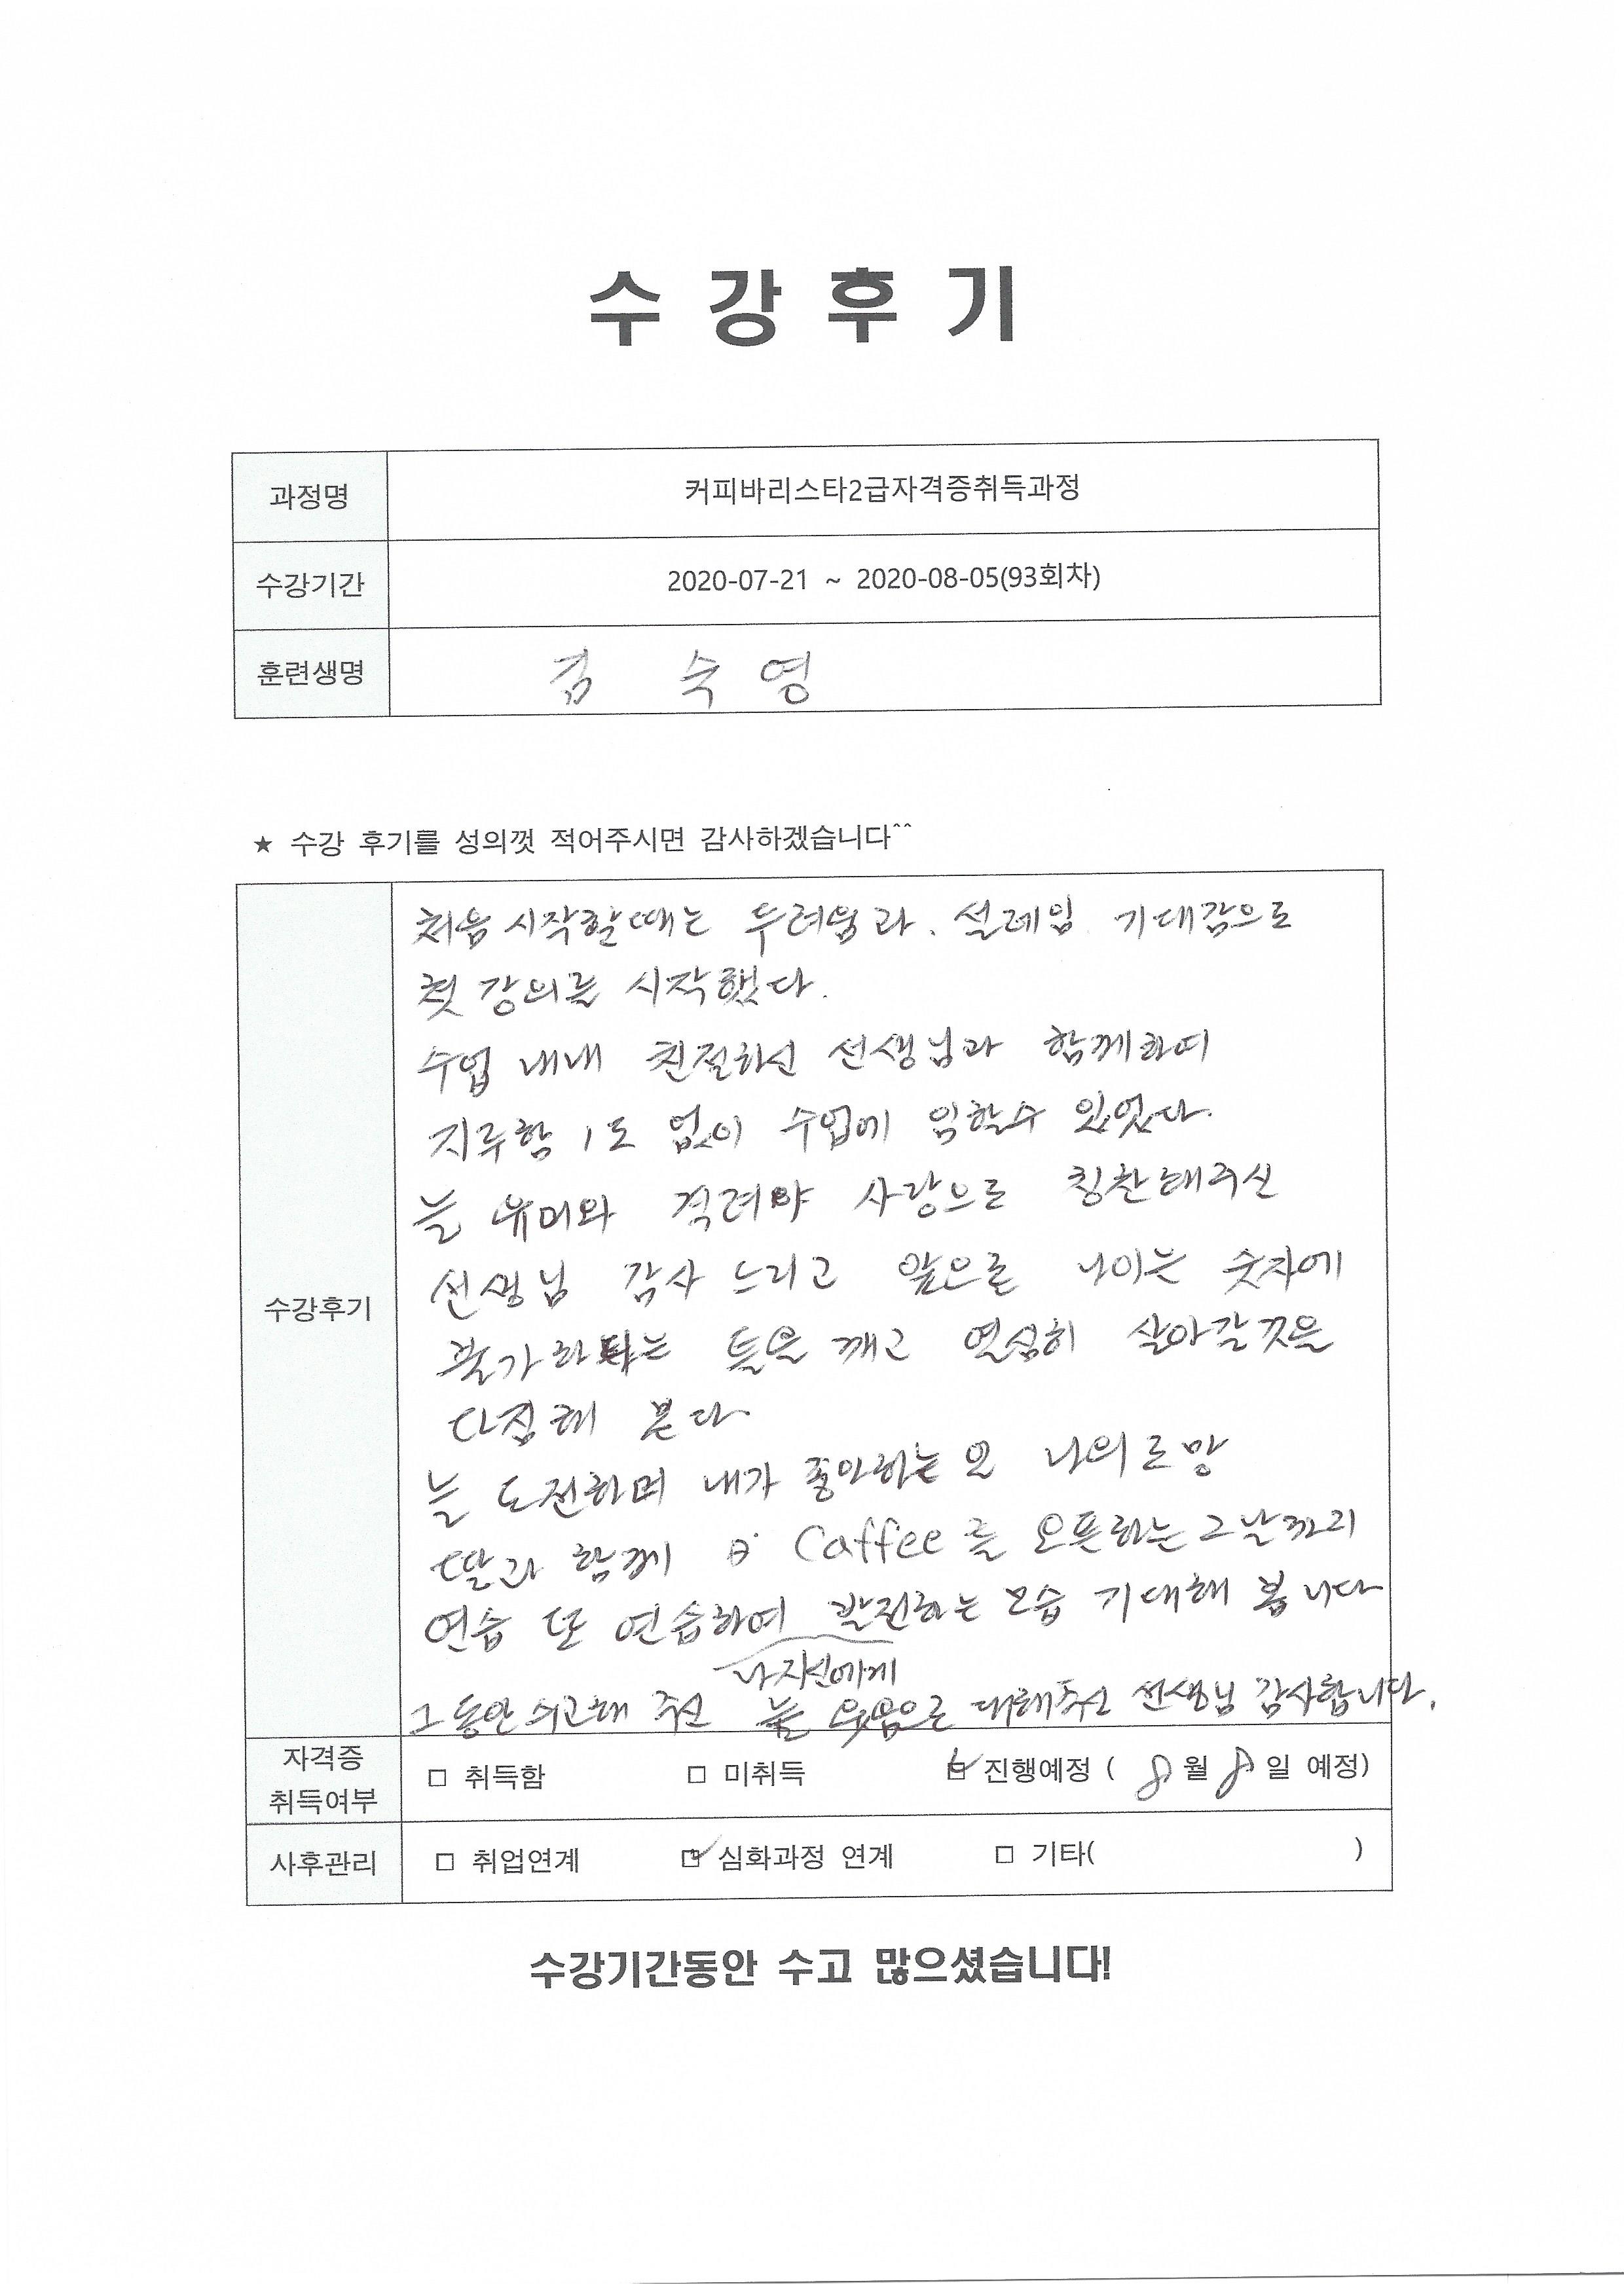 수강후기
과정명 커피바리스타2급자격증취득과정
수강기간 2020-07-21 ~ 2020-08-05(93회차)
훈련생명 김 숙 영
★ 수강 후기를 성의껏 적어주시면 감사하겠습니다^^
수강후기
처음 시작할때는 두려움과. 설레임 기대감으로
첫 강의를 시작했다.
수업 내내 친절하신 선생님과 함께하여
지루함 1도 없이 수업에 임할수 있었다.
늘 유머와 격려와 사랑으로 칭찬해주신
선생님 감사 드리고 앞으로 나이는 숫자에
불가하다는 틀을 깨고 열심히 살아갈것을
다짐해 본다
늘 도전하며 내가 좋아하는 일 나의 로망
딸과 함께 Caffee를 오픈하는 그날까지
연습 또 연습하여 발전하는 모습 기대해 봅니다
나자신에게
그동안 수고해 주신 늘 웃음으로 대해주신 선생님 감사합니다.
자격증
취득여부
□ 취득함 □ 미취득 ☑ 진행예정 ( 8월 8일 예정)
사후관리 □ 취업연계 ☑ 심화과정 연계 □ 기타( )
수강기간동안 수고 많으셨습니다!